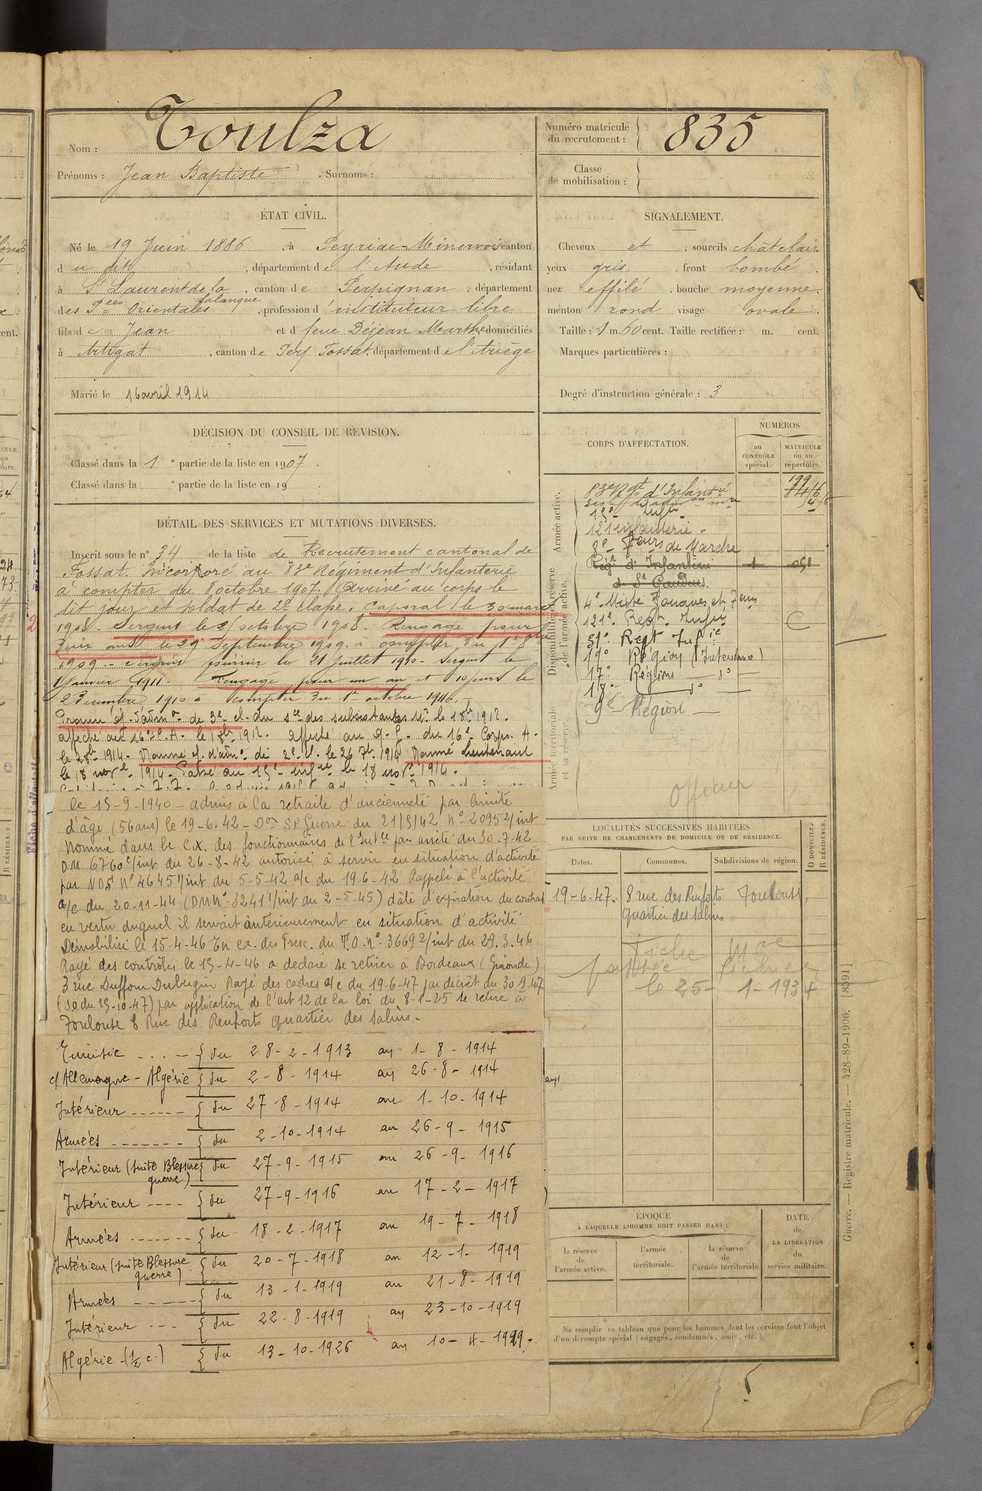 Nom : Toulza
Prénoms : Jean Baptiste . Surnoms :
Numéro matricule du recrutement : 835
Classe de mobilisation :
ÉTAT CIVIL.
Né le 19 Juin 1886 , à Peyriac-Minervois canton
du dit , département de l'Aude , résidant
à St Laurent de la Salanque , canton de Perpignan , département
des P.ées Orientales , profession d'instituteur libre
fils de Jean et de feue Dejean Marthe domiciliés
à Artigat , canton de Fossat, département de l'Ariège
Marié le 16 avril 1914
SIGNALEMENT.
Cheveux et , sourcils châtclair
yeux gris , front bombé
nez effilé , bouche moyenne
menton rond visage ovale
Taille : 1 m. 60 cent. Taille rectifiée : m. cent.
Marques particulières :
Degré d'instruction générale : 3
DÉCISION DU CONSEIL DE RÉVISION.
Classé dans la 1 e partie de la liste en 1907 .
Classé dans la e partie de la liste en 19
DÉTAIL DES SERVICES ET MUTATIONS DIVERSES.
Inscrit sous le n° 34 de la liste de Recrutement cantonal de
Fossat. Incorporé au Régiment d'Infanterie
à compter du 8 octobre 1907. Arrivé au corps le
dit jour et soldat de 2e classe. Caporal le 30 mars
1908. Sergent le octobre 1908. Rengagé pour
deux ans le 29 Septembre 1909 à compter du 1er 8bre
1909. fourrier le 21 Juillet 1910. Sergent le
Janvier 1911. Rengagé pour un an et jours le
2 Décembre 1910 à compter du 1er octobre 1911.
Promu of. d'admon de 3e cl. du sce des subsistances
affecté au 16e C.A. affecté au Q.G. du 16e Corps. A.
1914. Nommé of. d'adm. de 2e cl. le 26 7bre 1914 Nommé Lieutenant
le 18 nove. 1914. Passé au 15e infie le 18 nove 1914.
le 15-9-1940 - admis à la retraite d'ancienneté par limite
d'âge (56 ans) le 19-6-42 - Don S.P. Guerre du 21/5/42 N° 2095 2/int
Nommé dans le cx. des fonctionnaires de l'Intce par arrêté du 30-7-42
DM 6760 1/int du 26-8-42 autorisé à servir en situation d'activité
par NDS N° 4645 1/int du 5-5-42 a/c du 19-6-42 Rappelé à l'activité
a/c du 20-11-44 (DM N° 3241 1/int du 2-5-45) date d'expiration du contrat
en vertu duquel il servait antérieurement en situation d'activité
Démobilisé le 15-4-46 En ex. des Presc. du T.O. n° 3669 2/int du 29.3.46
Rayé des contrôles le 15-4-46 a déclaré se retirer à Bordeaux (Gironde)
3 rue Duffour Dubergier Rayé des cadres a/c du 19-6-47 par décret du 30-9-47
(JO du 15-10-47) par application de l'art 12 de la loi du 8-1-25 se retire à
Toulouse 8 Rue des Renforts quartier des Salins.
Tunisie - - - - { du 28-2-1913 au 1-8-1914
c/Allemagne - Algérie { du 2-8-1914 au 26-8-1914
Intérieur - - - - { du 27-8-1914 au 1-10-1914
Armées - - - - { du 2-10-1914 au 26-9-1915
Intérieur (suite Blessure guerre) { du 27-9-1915 au 26-9-1916
Intérieur - - - - { du 27-9-1916 au 17-2-1917
Armées - - - - { du 18-2-1917 au 19-7-1918
Intérieur (suite Blessure guerre) { du 20-7-1918 au 12-1-1919
Armées - - - - { du 13-1-1919 au 21-8-1919
Intérieur - - - { du 22-8-1919 au 23-10-1919
Algérie { du 13-10-1926 au
CORPS D'AFFECTATION.
NUMÉROS
au CONTRÔLE spécial.
MATRICULE ou au répertoire.
Armée active.
Disponibilité et réserve de l'armée active.
Armée territoriale et sa réserve.
121 infanterie
de Marche
Régt d'Infanterie
de St Gaudens
4e Mixte Zouaves et
121e Regt Infie
51e Regt Infie
19e Région (Intendance)
17e Région
17e
9e Région
Officier
LOCALITÉS SUCCESSIVES HABITÉES
PAR SUITE DE CHANGEMENTS DE DOMICILE OU DE RÉSIDENCE.
Dates. Communes. Subdivisions de région.
D DOMICILE, R RÉSIDENCE.
19-6-47 8 rue des Renforts Toulouse
Quartier des Salins
Fiche
fichier
le 25-1-1934
ÉPOQUE
À LAQUELLE L'HOMME DOIT PASSER DANS :
la réserve de l'armée active.
l'armée territoriale.
la réserve de l'armée territoriale.
DATE de LA LIBÉRATION du service militaire.
Ne remplir ce tableau que pour les hommes dont les services font l'objet
d'un décompte spécial (engagés, condamnés, omis, etc.).
Guerre. — Registre matricule. — 428-89-1906. [8391]